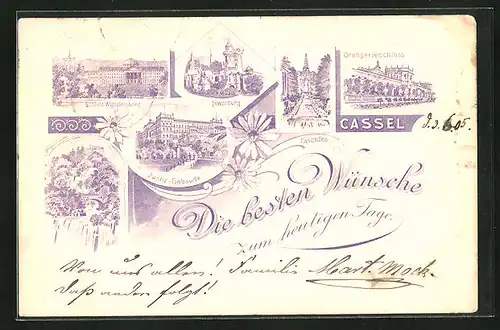 Orangerieschloss
Schloss Wilhelmshöhe
Löwenburg
Cascaden
CASSEL
Justiz-Gebäude
Die besten Wünsche
zum heutigen Tage.
Von uns allen! Familie Mart. Mock.
daß andere folgt!